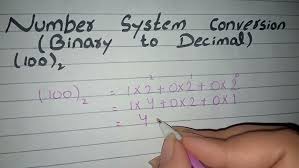 Number System Conversion
(Binary to Decimal)
(100)₂
(100)₂ = 1×2²+0×2¹+0×2⁰
= 1×4+0×2+0×1
= 4